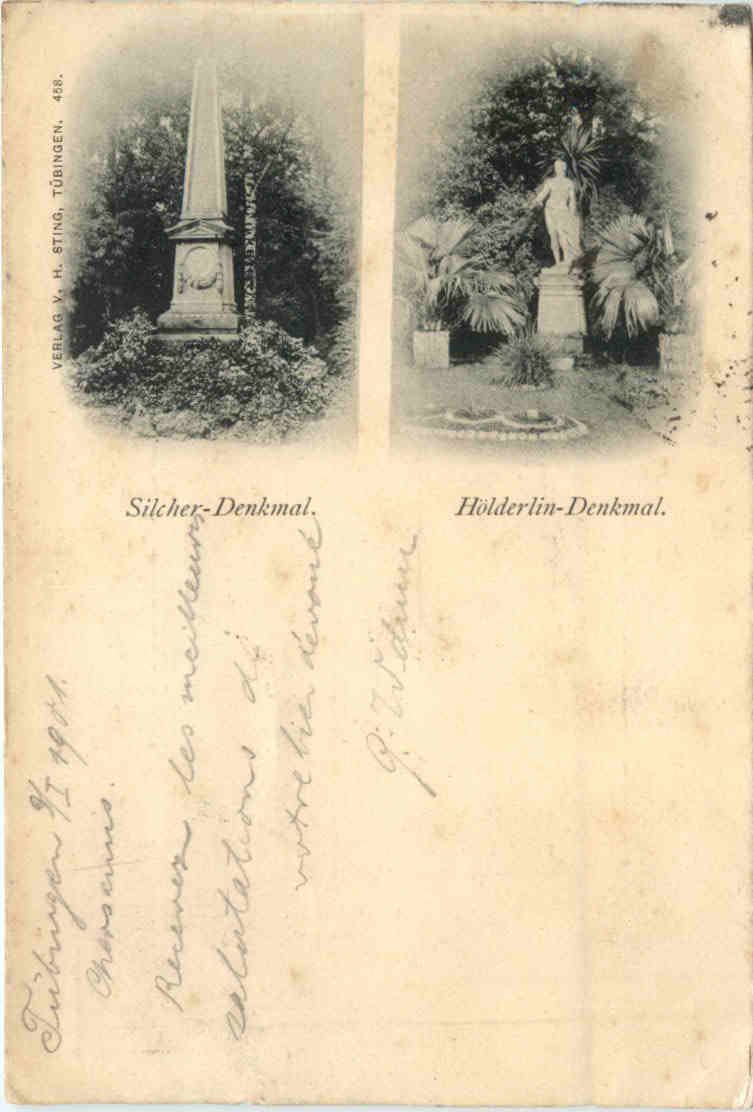 VERLAG V. H. STING, TÜBINGEN. 458.
Silcher-Denkmal.
Hölderlin-Denkmal.
Tübingen 9/I 1901.
Recevez les meilleurs
salutations di
votre